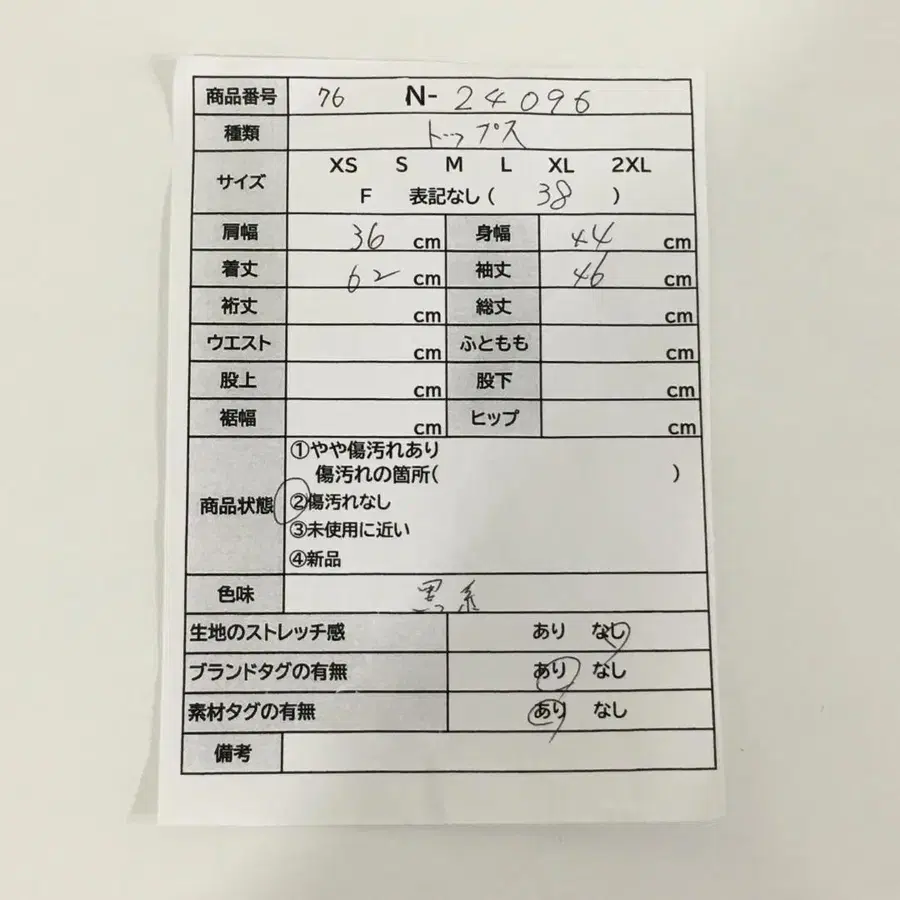 商品番号 76 N- 24096
種類 トップス
サイズ XS S M L XL 2XL
F 表記なし ( 38 )
肩幅 36 cm 身幅 44 cm
着丈 62 cm 袖丈 46 cm
裄丈 cm 総丈 cm
ウエスト cm ふともも cm
股上 cm 股下 cm
裾幅 cm ヒップ cm
商品状態 ①やや傷汚れあり
傷汚れの箇所( )
②傷汚れなし
③未使用に近い
④新品
色味 黒系
生地のストレッチ感 あり なし
ブランドタグの有無 あり なし
素材タグの有無 あり なし
備考